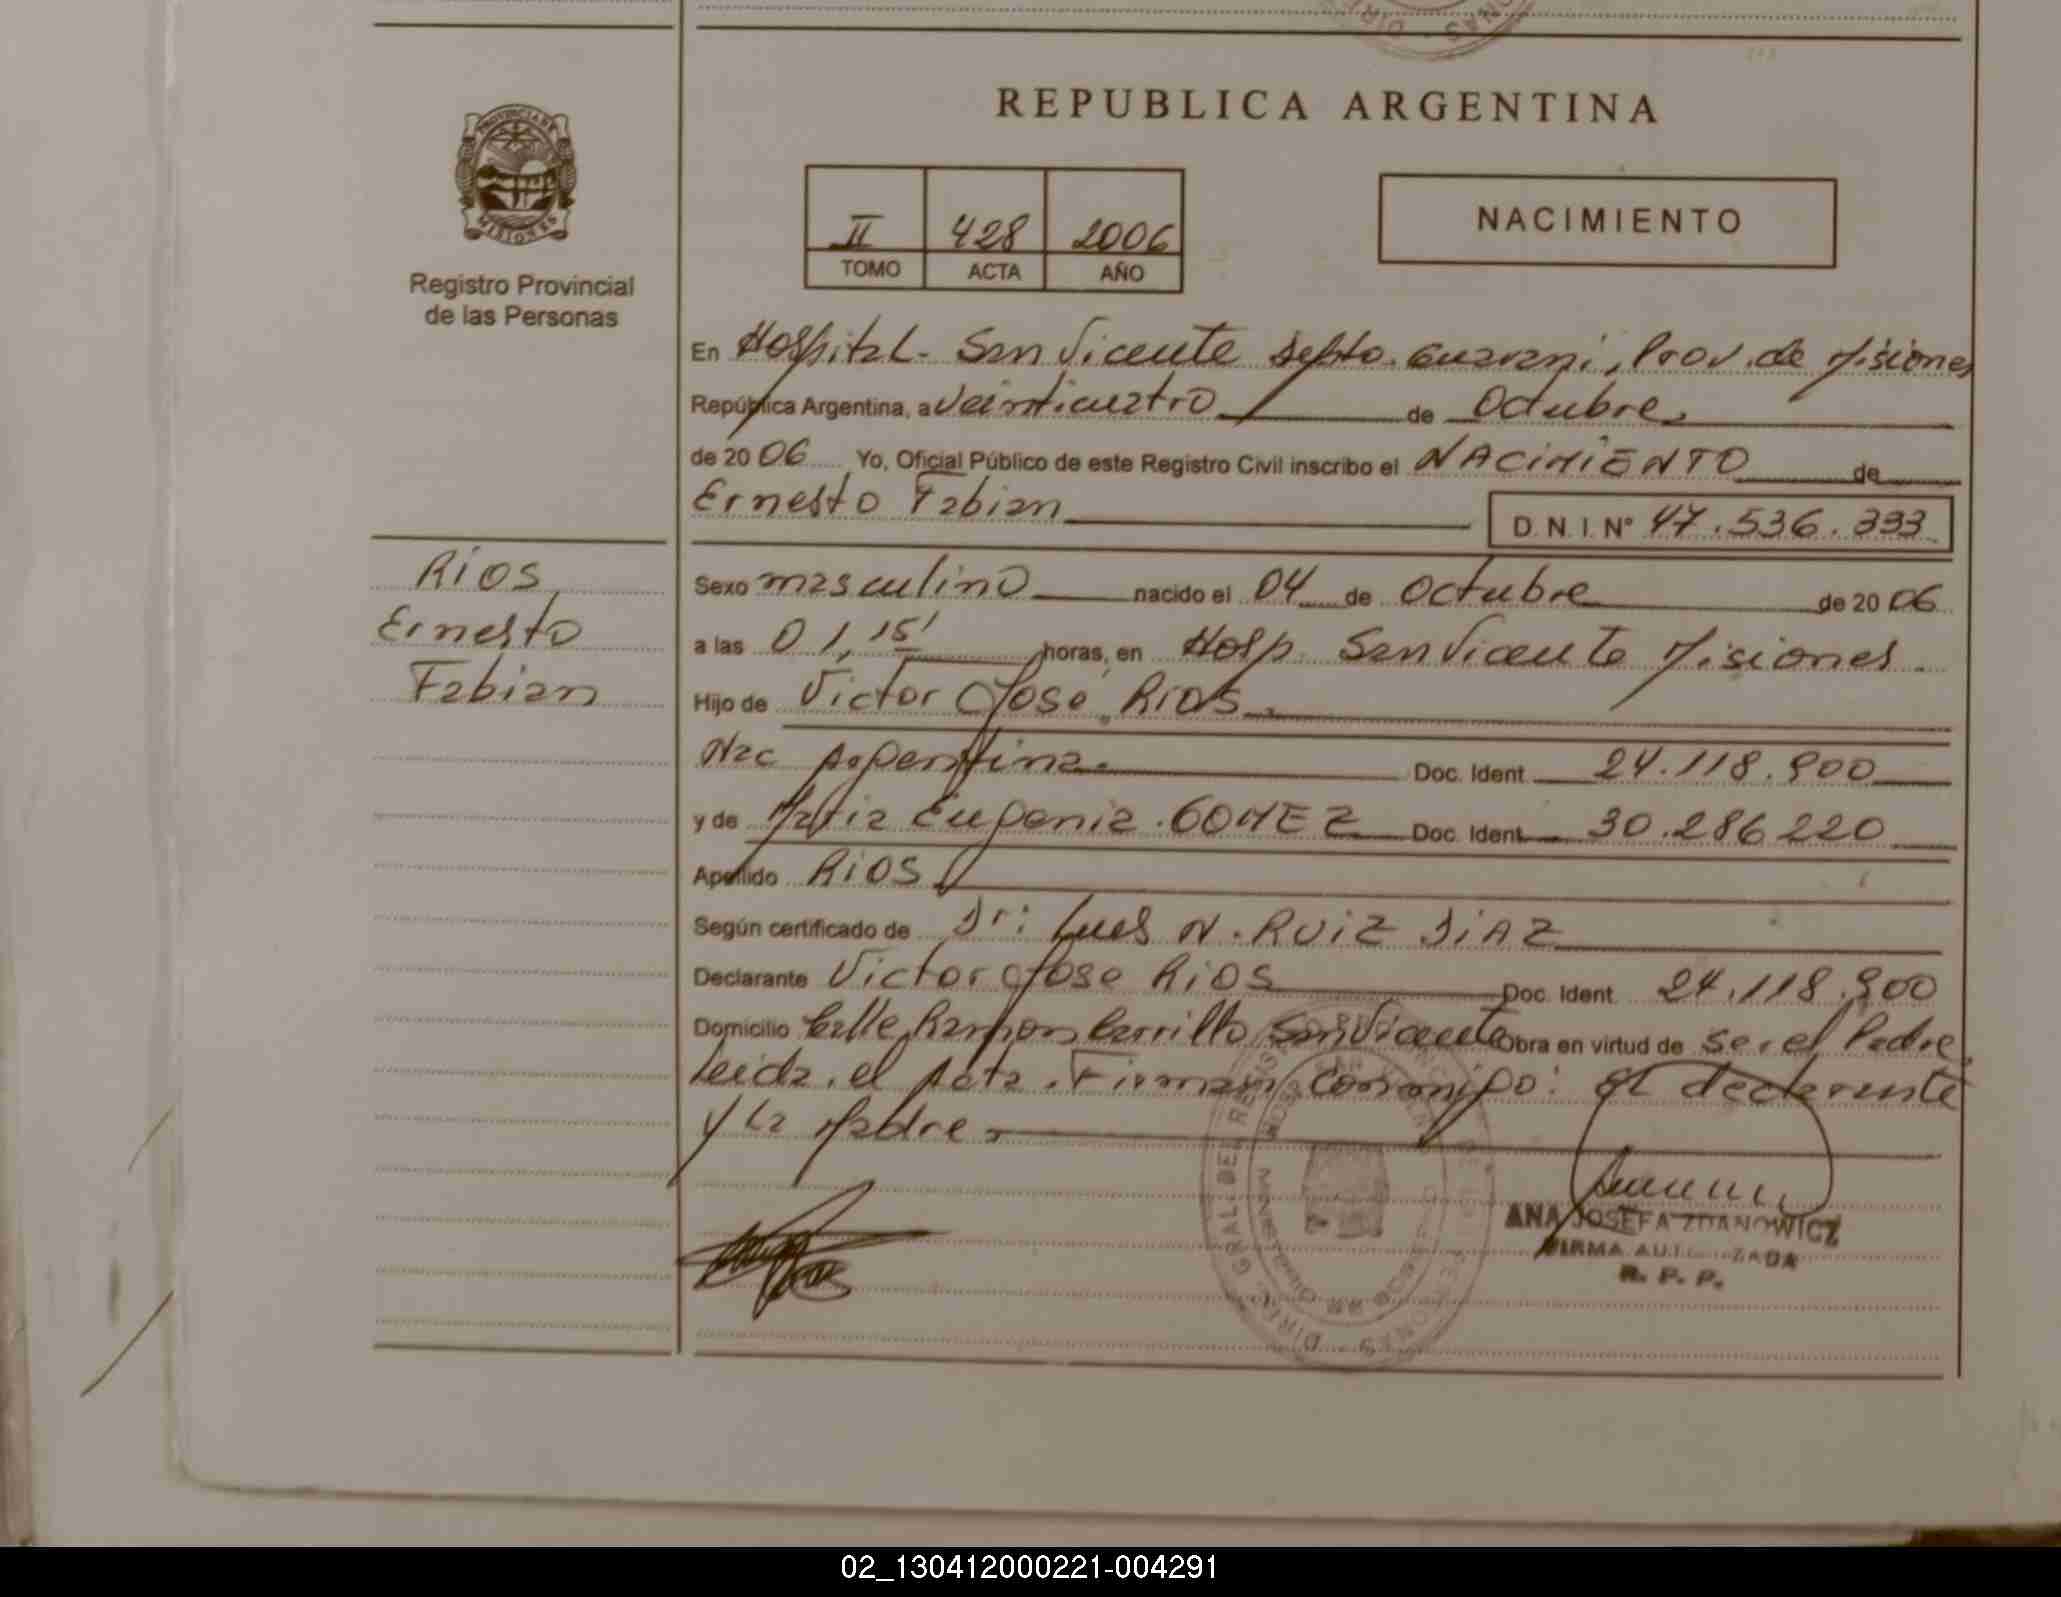 REPUBLICA ARGENTINA
PROVINCIA DE
MISIONES
Registro Provincial
de las Personas
II 428 2006
TOMO ACTA AÑO
NACIMIENTO
En Hospital - San Vicente Depto. Guarani, Prov. de Misiones
República Argentina, a veinticuatro de Octubre
de 2006 Yo, Oficial Público de este Registro Civil inscribo el NACIMIENTO de
Ernesto Fabian
D. N. I. N° 47.536.333
RIOS
Ernesto
Fabian
Sexo masculino nacido el 04 de octubre de 2006
a las 01,15' horas, en Hosp. San Vicente Misiones.
Hijo de Victor José RIOS
Nac Argentina. Doc. Ident. 24.118.900
y de Maria Eugenia GOMEZ Doc. Ident. 30.286220
Apellido RIOS
Según certificado de Dr: Luis N. RUIZ DIAZ
Declarante Victor Jose RIOS Doc. Ident. 24.118.900
Domicilio Calle Ramon Carrillo San Vicente Obra en virtud de ser el Padre,
Leida el Acta. Firman Conmigo: el declarante
y la Madre
ANA JOSEFA ZDANOWICZ
FIRMA AUTORIZADA
R. P. P.
02_130412000221-004291